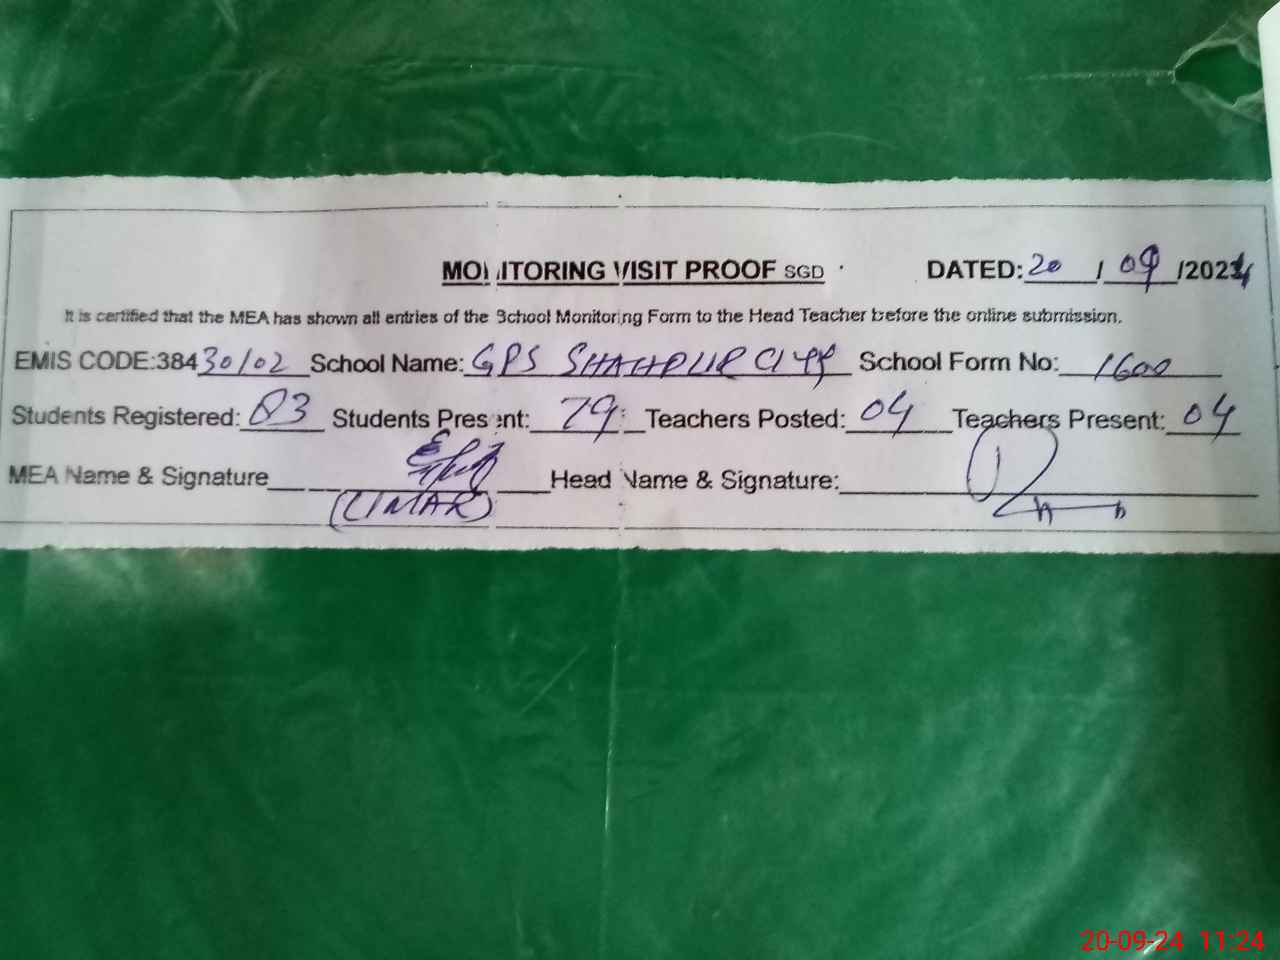 MONITORING VISIT PROOF SGD DATED: 20 / 09 /2024
It is certified that the MEA has shown all entries of the School Monitoring Form to the Head Teacher before the online submission.
EMIS CODE:38430102 School Name: GPS SHAHPUR CITY School Form No: 1600
Students Registered: 83 Students Present: 79 Teachers Posted: 04 Teachers Present: 04
MEA Name & Signature Head Name & Signature:
(UMAR)
20-09-24 11:24